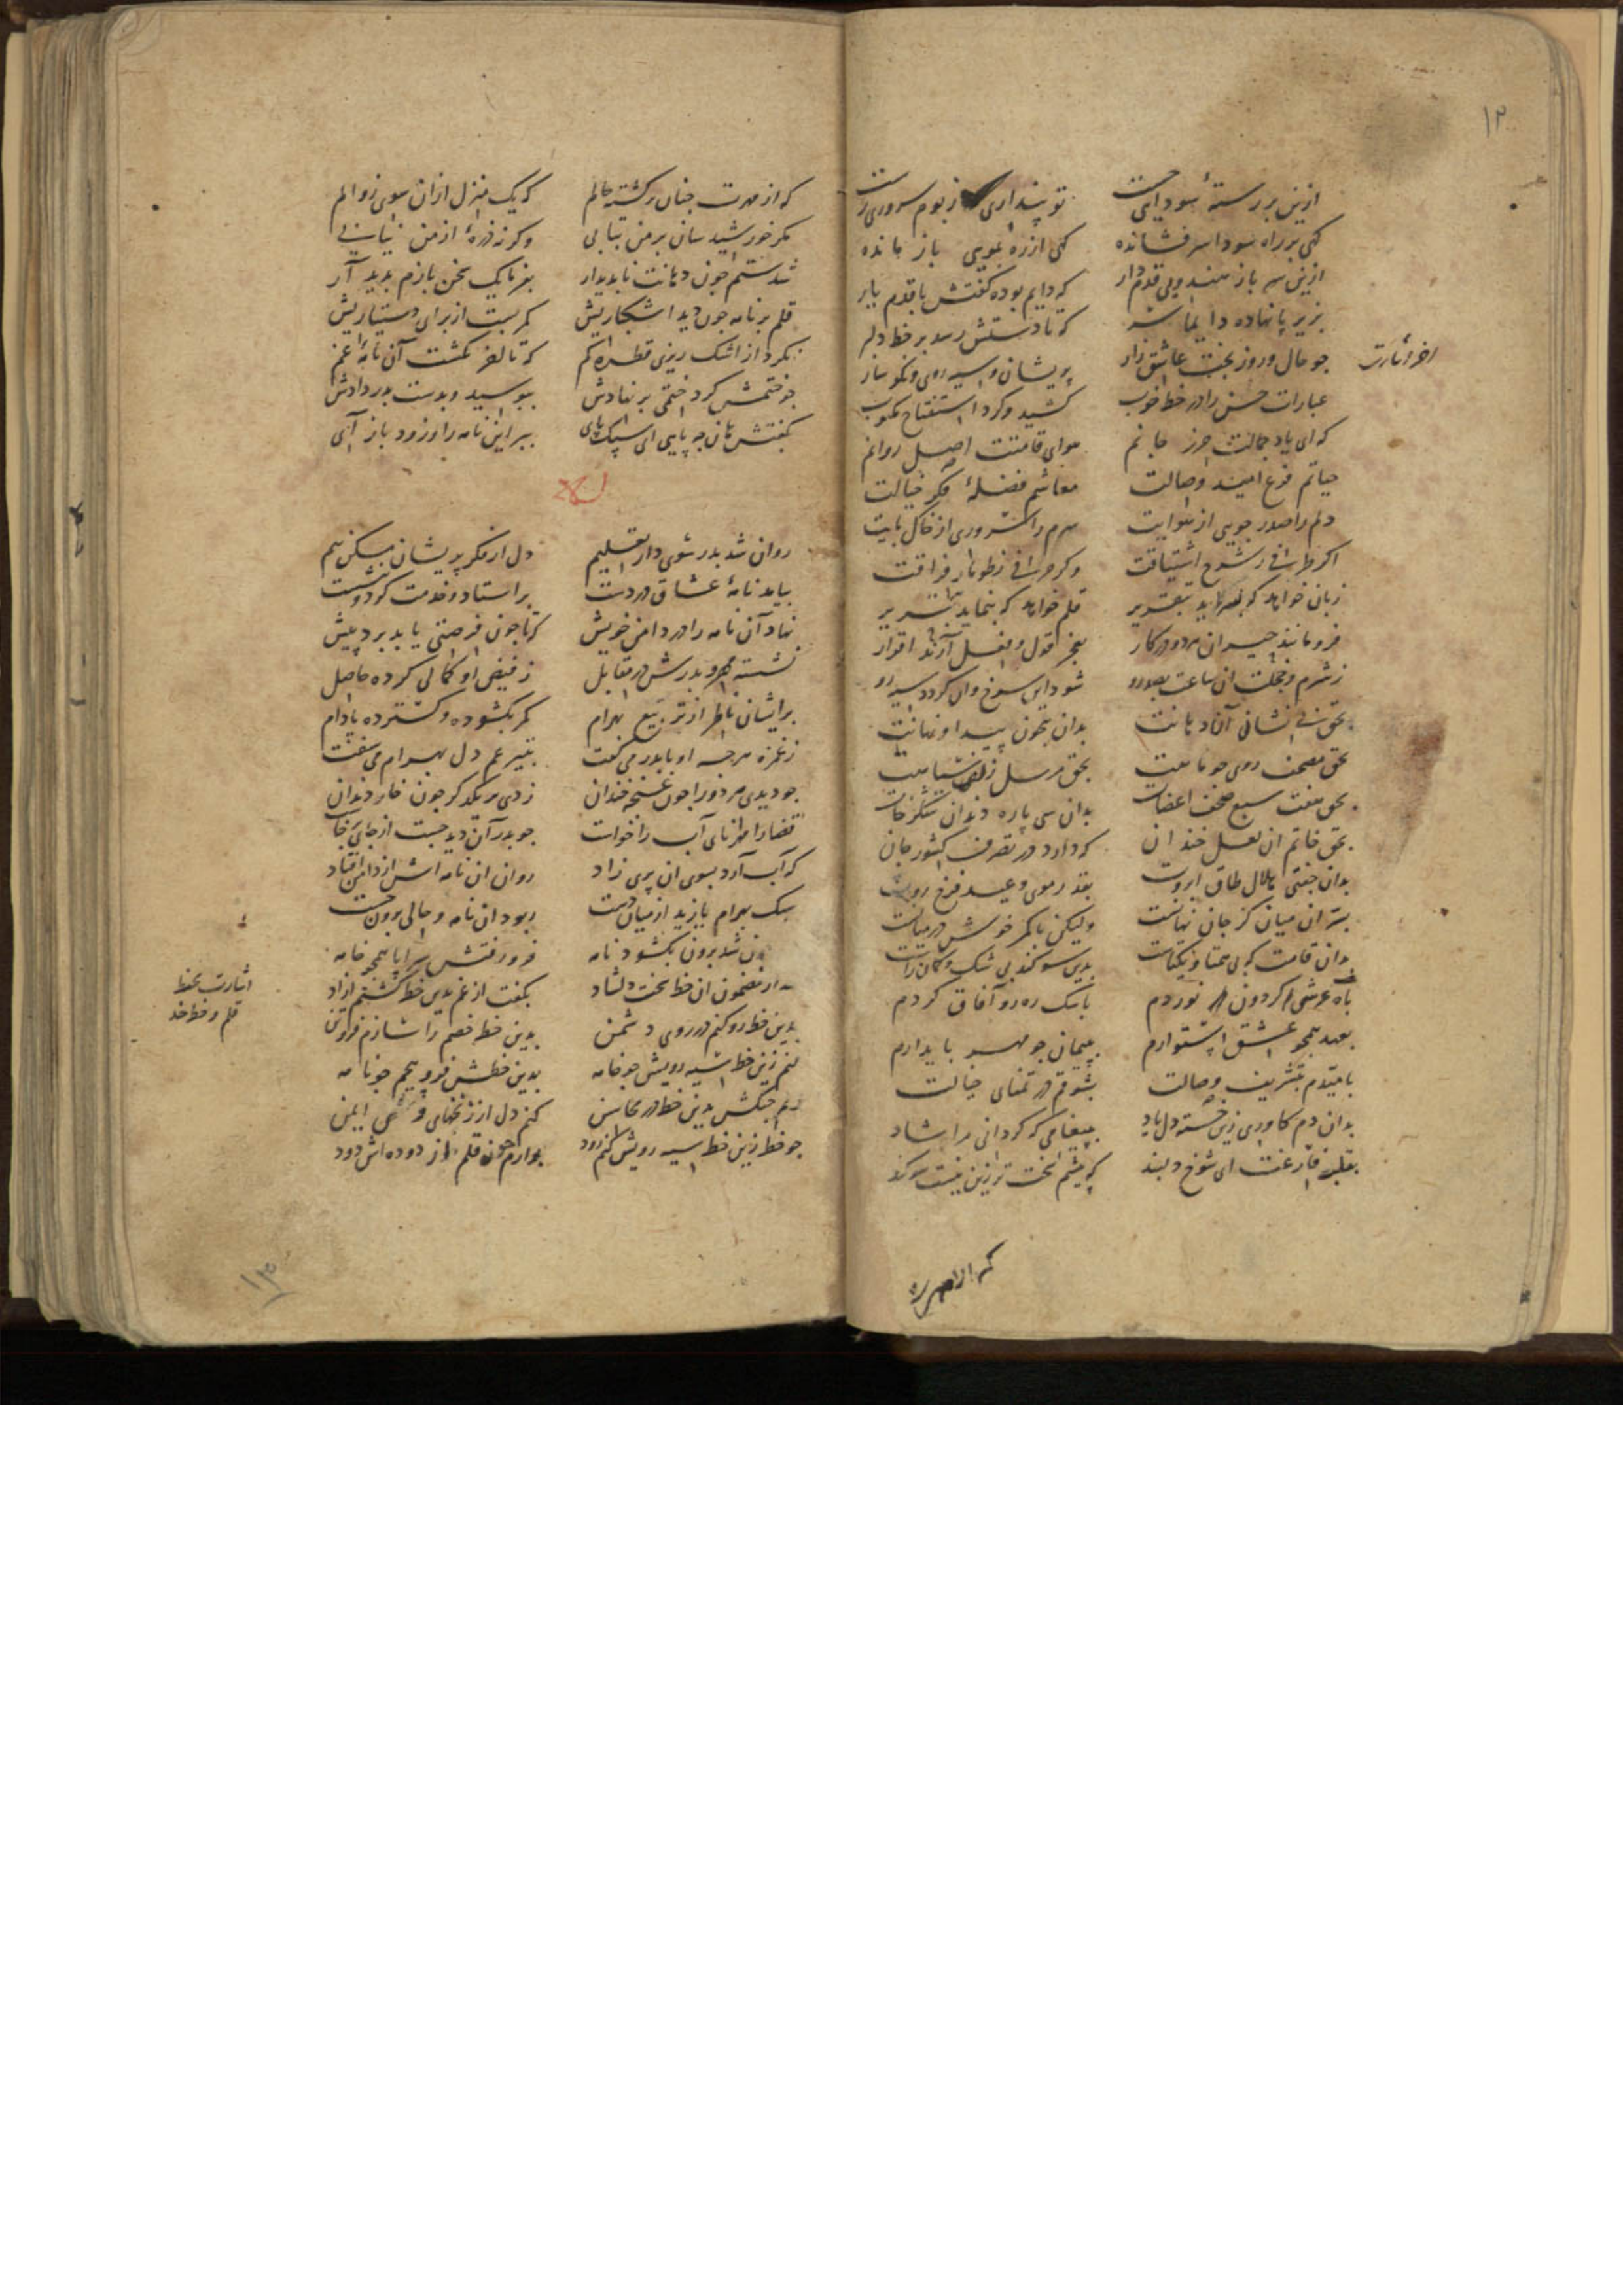 ۱۲
ازین بر رستهٔ سودایست تو پنداری ز بوم سروری رست
کهی بر راه سودا سر فشانده کهی از ره بمویی باز مانده
ازین سر باز که دایم بوده کفتش با قدم یار
بزیر پا نهاده دایما سر که تا دستش رسد بر خط دلبر
اخر اشارت
چو حال و روز بخت عاشق زار پریشان و سیه روی و نکو سار
عبارات حسن را در خط خوب کشید و کرد استفتاح مکتوب
که ای یاد جمالت حرز جانم هوای قامتت اصل روانم
حیاتم فرع امید وصالت معاشم فضلهٔ فکر خیالت
دلم را صدر جویی از هوایت سرم را سروری از خاک پایت
اکر طرفی ز شرح اشتیاقت وکر حرفی ز طومار فراقت
زبان خواهد که بسراید بتقریر قلم خواهد که بنماید بتحریر
فرو مانند حیران هر دو در کار بعجز قول و فعل آرند اقرار
ز شرم و خجلت آن ساعت بصد رو شود این سرخ و آن کردد سیه رو
بحق بی نشانی آن دهانت بدان بیچون پیدا و نهانت
بحق مصحف روی چو ماهت بحق مرسل زلف سیاهت
بحق هفت سبع مصحف اعضات بدان سی پاره دندان شکرخات
بحق خاتم آن لعل خندان که دارد در تصرف کشور جان
بدان جفتی هلال طاق ابروت بقدر موی و عید فرخ روت
بسر آن میان کز جان نهانست ولیکن با کمر خوش در میانست
بدان قامت که بی همتا و یکتاست بدین سوکند بی شک و کمان راست
بآه عرشی کردون نوردم باشک ره رو آفاق کردم
بعهد همچو عشق استوارم بپیمان چو مهر پایدارم
بامیدم بتشریف وصالت بشوقم در تمنای خیالت
بدان دم کاوری زین خسته دل یاد بپیغامی که کردانی مرا شاد
بقلب فارغت ای شوخ دلبند که پیشم سخت تر زین نیست سوکند
که از مهرت چنان برکشته حالم که یک منزل از آن سوی زوالم
مکر خورشید سان بر من بتابی وکرنه ذرهٔ از من نیابی
شدستم چون دهانت ناپدیدار بفرما یک سخن بازم پدید آر
قلم بر نامه چون دید اشکباریش کمر بست از برای دستیاریش
نکرد از اشک ریزی قطرهٔ کم که تا آخر نکشت آن نامهٔ غم
چو ختمش کرد ختمی بر نهادش ببوسید و بدست بدر دادش
بکفتش هان چه پایی ای سبک پای ببر این نامه را و زود باز آی
روان شد بدر سوی دار تعلیم دل از فکر پریشان بسکن بیم
بیامد نامهٔ عشاق در دست بر استاد و خدمت کرد و بنشست
نهاد آن نامه را در دامن خویش که تا چون فرصتی یابد برد پیش
نشسته مهر و بدرش در مقابل ز فیض او کمالی کرده حاصل
بر ایشان ناظر از تربیع بهرام کمر بکشوده و کسترده پا دام
ز غمزه هر چه او با بدر می کفت بتیر غم دل بهرام می سفت
چو دیدی هر دو را چون غنچه خندان زدی بر یکدکر چون خار دندان
قضا را مهر نامی آب را خواست چو بدر آن دید جست از جای برخاست
که آب آرد بسوی آن پری زاد روان آن نامه اش از دامن افتاد
سبک بهرام یازید از میان دست ربود آن نامه و حالی برون جست
برون شد بکشود نامه فرو رفتش سراپا همچو خامه
از مضمون آن خط سخت دلشاد بکفت از غم بدین خط کشتم آزاد
اشارت بخط
قلم و خط خد
بدین خط رو کنم در روی دشمن بدین خط خصم را سازم فروتن
کنم زین خط سیه رویش چو خامه بدین خطش فرو پیچم چو نامه
بدین خط در محاسن کنم دل از زنخهای وی ایمن
چو خط زین خط سیه رویش کنم زود برآرم چون قلم از دوده اش دود
که از مهرت
۱۳